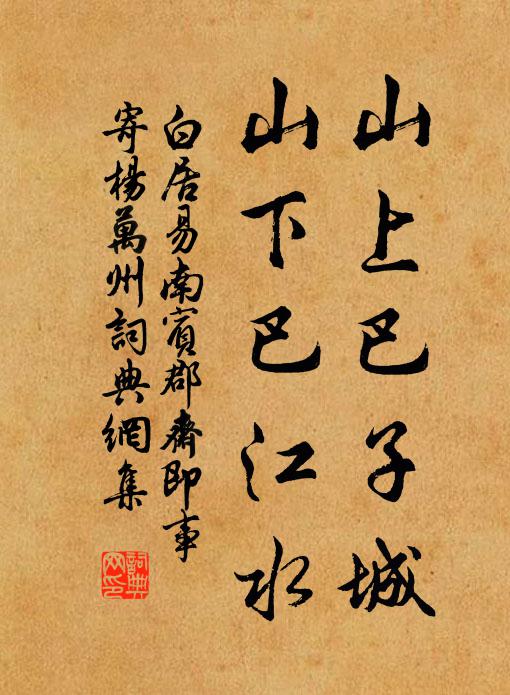 山上巴子城
山下巴江水
白居易南賓郡齋即事
寄楊萬州詞典網集
詞典
网印